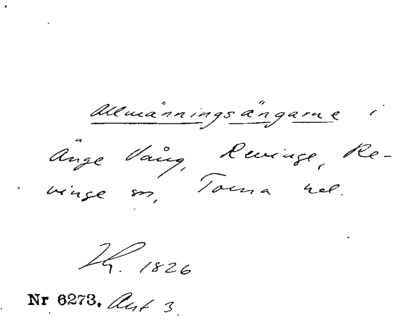 Allmänningsängarne i
Änge Vång, Revinge, Re-
vinge sn, Torna hd.
1826
Nr 6273. Akt 3.